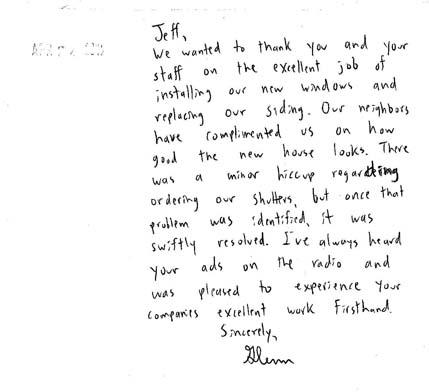 Jeff,
We wanted to thank you and your
staff on the excellent job of
installing our new windows and
replacing our siding. Our neighbors
have complimented us on how
good the new house looks. There
was a minor hiccup regarding
ordering our shutters, but once that
problem was identified, it was
swiftly resolved. I've always heard
your ads on the radio and
was pleased to experience your
companies excellent work firsthand.
Sincerely,
Glenn